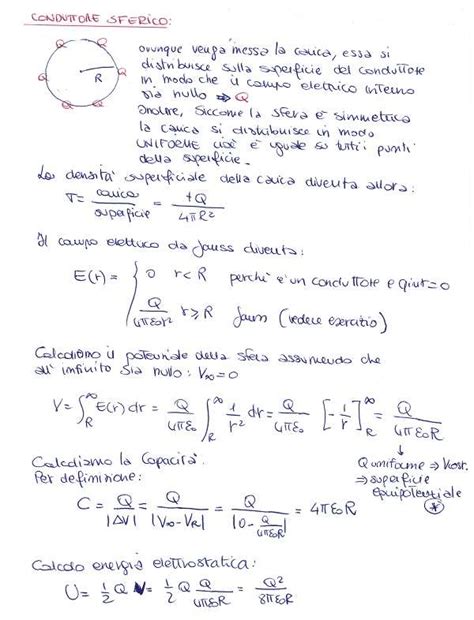 CONDUTTORE SFERICO:
Q Q Q Q Q Q R
ovunque venga messa la carica, essa si
distribuisce sulla superficie del conduttore
in modo che il campo elettrico interno
sia nullo ⇒ Q
Inoltre, siccome la sfera è simmetrica
la carica si distribuisce in modo
UNIFORME cioè è uguale su tutti i punti
della superficie.
La densità superficiale della carica diventa allora:
σ = carica/superficie = +Q/4πR²
Il campo elettrico da Gauss diventa:
E(r) = { 0 r<R perché è un conduttore e qint=0
Q/4πε0r² r≥R Gauss (vedere esercizio)
Calcoliamo il potenziale della sfera assumendo che
all'infinito sia nullo: V∞=0
V = ∫_R^∞ E(r) dr = Q/4πε0 ∫_R^∞ 1/r² dr = Q/4πε0 [-1/r]_R^∞ = Q/4πε0R
↓
Q uniforme ⇒ Vcost.
⇒ superficie
equipotenziale
*
Calcoliamo la Capacità.
Per definizione:
C = Q/|ΔV| = Q/|V∞-VR| = Q/|0-Q/4πε0R| = 4πε0R
Calcolo energia elettrostatica:
U = 1/2 Q V = 1/2 Q Q/4πε0R = Q²/8πε0R